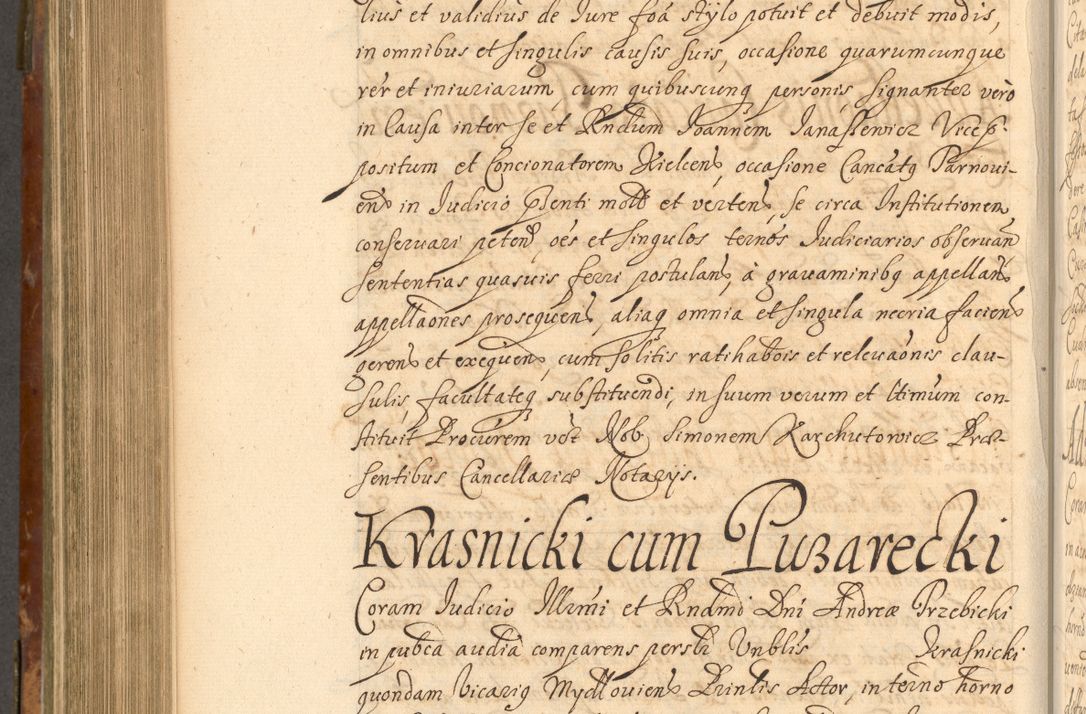 lius et validius de Jure foã stylo potuit et debuit modis,
in omnibus et singulis causis suis, occasione quarumcunque
rer et iniuriarum, cum quibuscunq personis signanter vero
in Causa inter se et Rndum Joannem Janaszewicz Vicep-
positum et Concionatorem Kielcen, occasione Cancatq Parnovi-
en in Judicio Psenti mott et verten se circa Institutionem
conservari peten oes et singulos ternos Judiciarios observan
sententias quasuis ferri postulan, à gravaminibq appellan
appellaones prosequen, aliaq omnia et singula necria facien
geren et exequen, cum solitis ratihabois et relevaonis clau-
sulis, facultateq substituendi, in suum verum et ltimum con-
stituit Procurem vôt Nob Simonem Karchutowicz Præ-
sentibus Cancellariæ Notarys.
Krasnicki cum Puzarecki
Coram Judicio Illrmi et Rndmi Dni Andreæ Trzebicki
in pubca audia comparens persłr Vnblis Krasnicki
quondam Vicariq Mydlovien Prinlis Actor, in terno horno